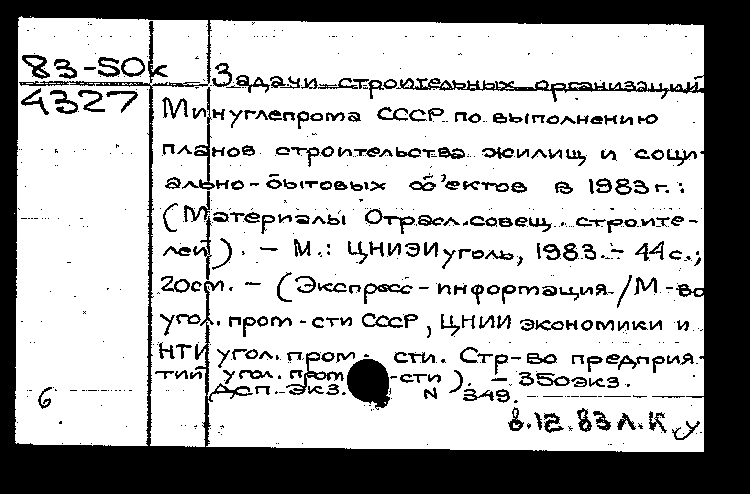 83-50к Задачи строительных организаций
4327 Минуглепрома СССР по выполнению
планов строительства жилищ и соци-
ально-бытовых об'ектов в 1983 г.:
(Материалы Отрасл. совещ. строите-
лей). - М.: ЦНИЭИуголь, 1983. - 44 с.;
20см. - (Экспресс-информация / М-во
угол. пром-сти СССР, ЦНИИ экономики и
НТИ угол. пром-сти. Стр-во предприя-
тий угол. пром-сти). - 350экз.
ДСП. Экз. N 349.
6
8.12.83 Л.К.